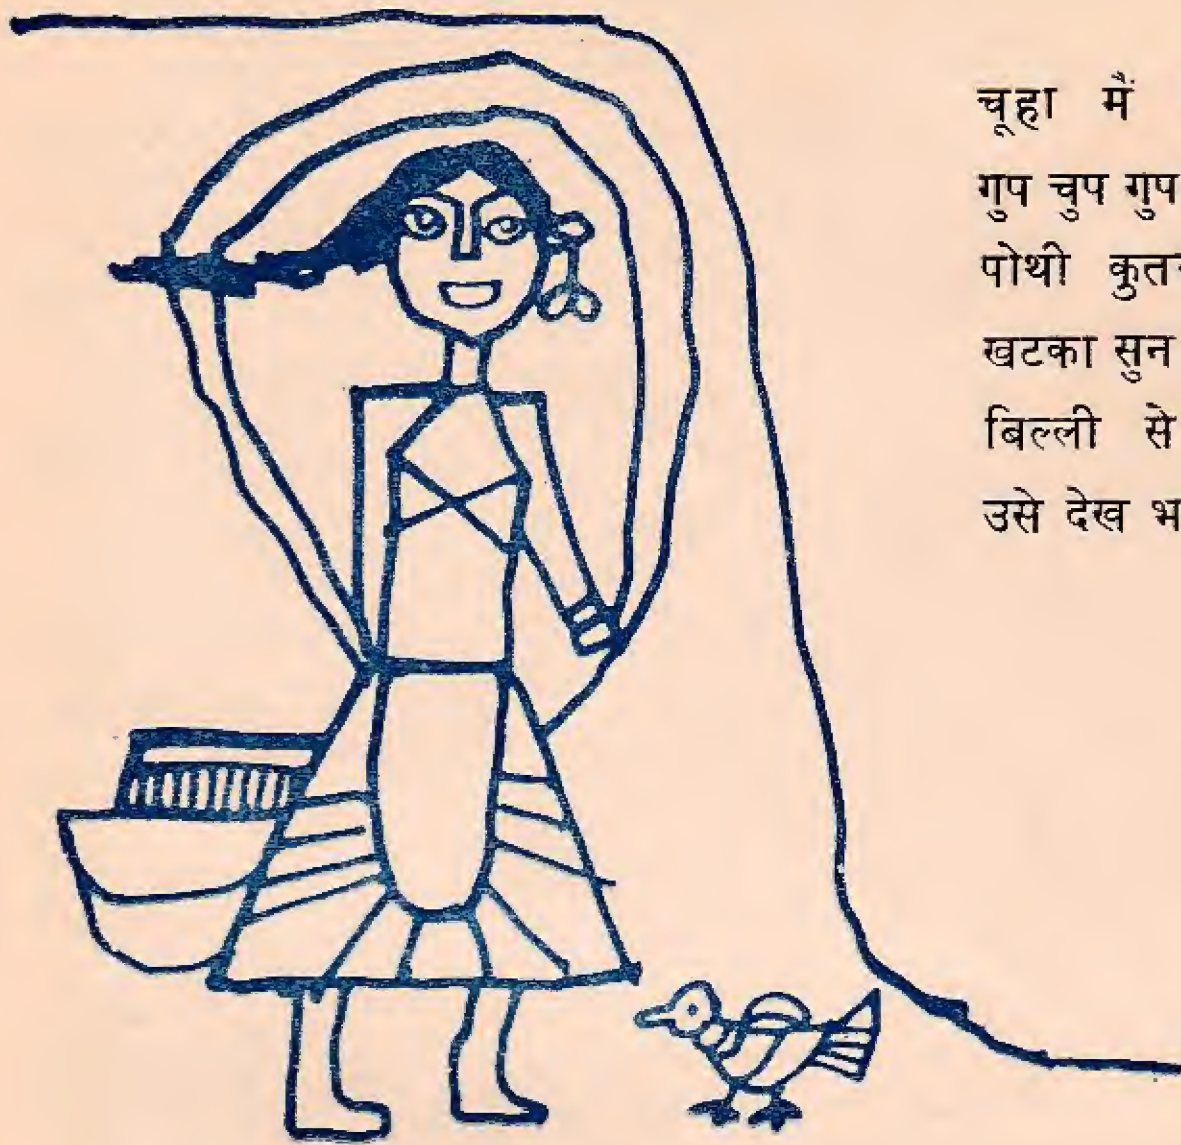 चूहा मैं
गुप चुप गुप
पोथी
खटका सुन
बिल्ली से
उसे देख